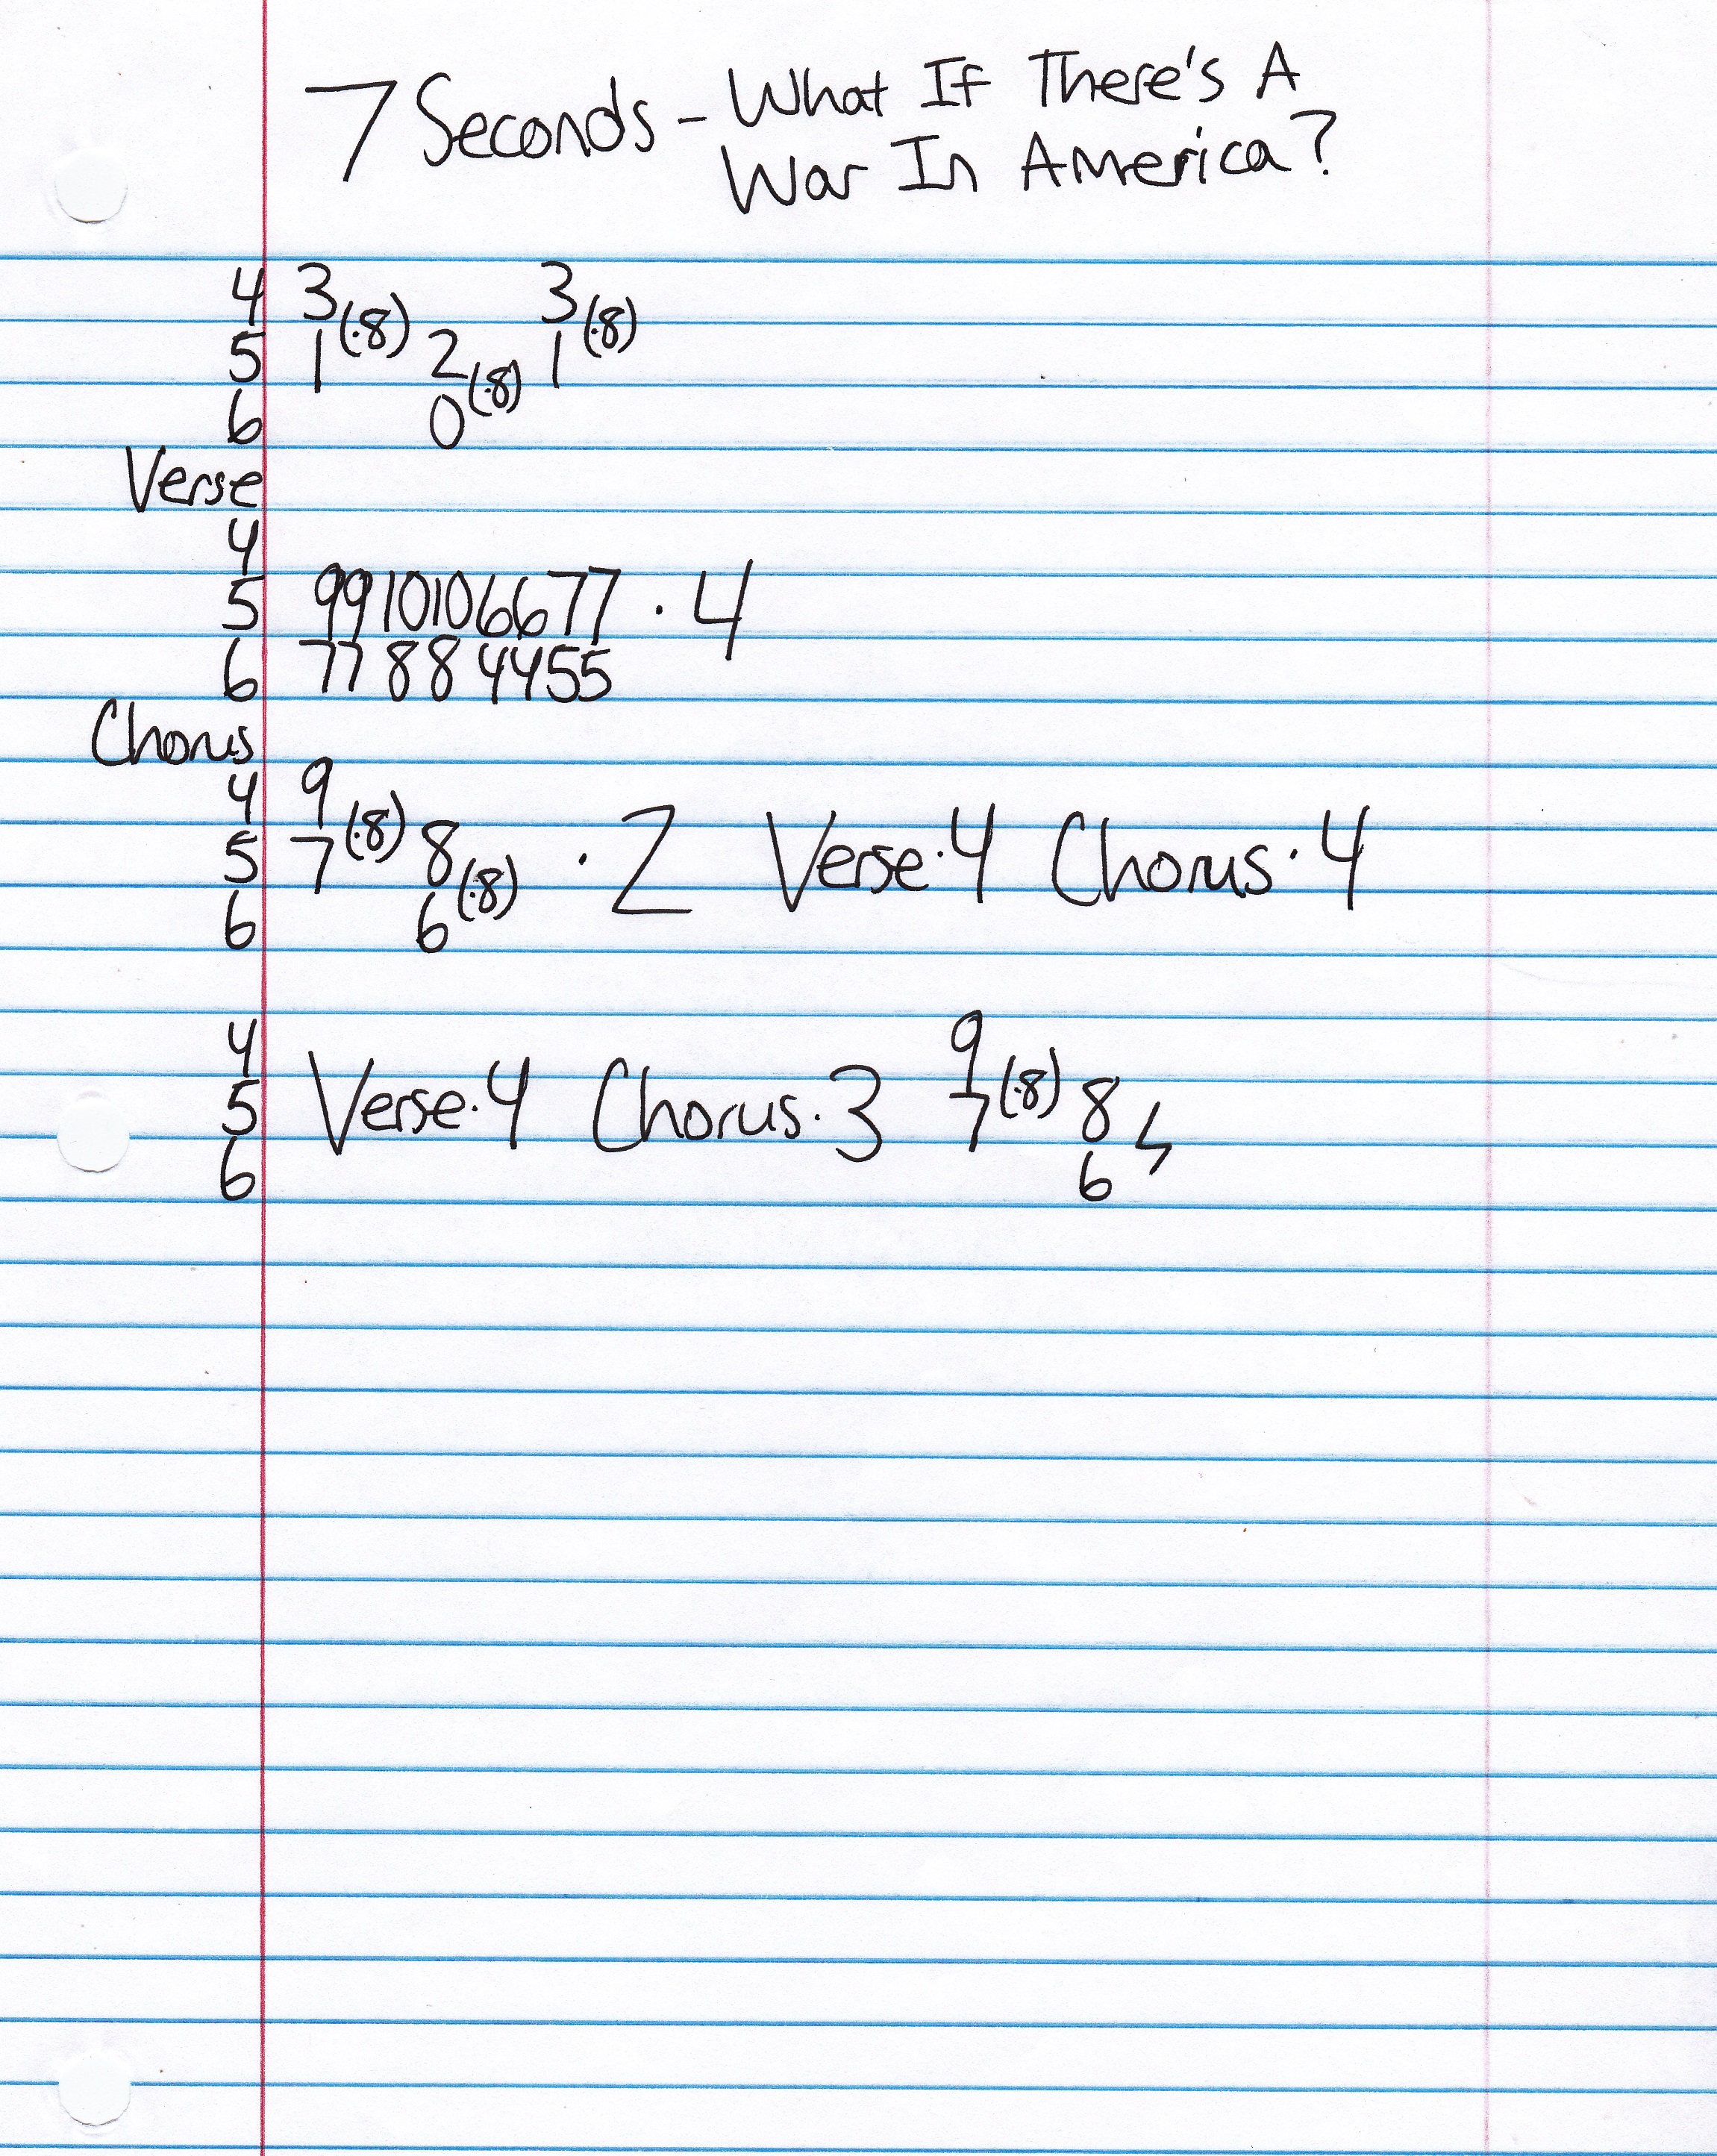 7 Seconds - What If There's A
War In America?
4 3(·8) 3(·8)
5 1 2(·8) 1
6 0
Verse
4
5 9910106677 · 4
6 77884455
Chorus
4 9(·8)
5 7 8(·8) · 2 Verse·4 Chorus·4
6 6
4 9(·8)
5 Verse·4 Chorus·3 7 8 ↯
6 6